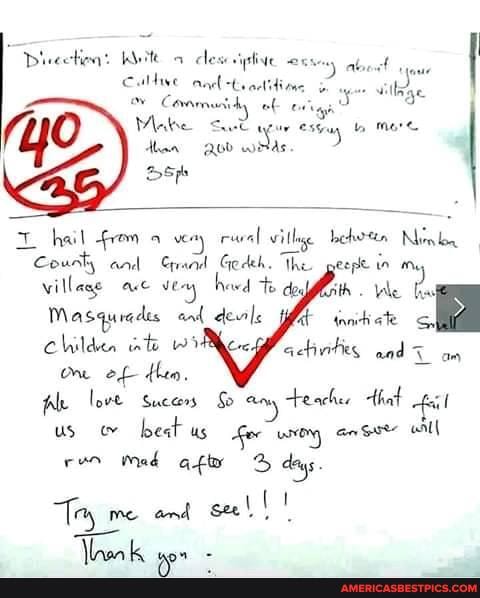 Direction: Write a descriptive essay about your
Culture and traditions in your village
or Community of origin
Make Sure your essay is more
than 200 words.
35pts
40
35
I hail from a very rural village between Nimba
County and Grand Gedeh. The people in my
village are very hard to deal with. We have
Masqurades and devils that innitiate Small
Children into witchcraft activities and I am
one of them.
We love Success So any teacher that fail
us or beat us for wrong answer will
run mad after 3 days.
Try me and see!!!
Thank you.
AMERICASBESTPICS.COM